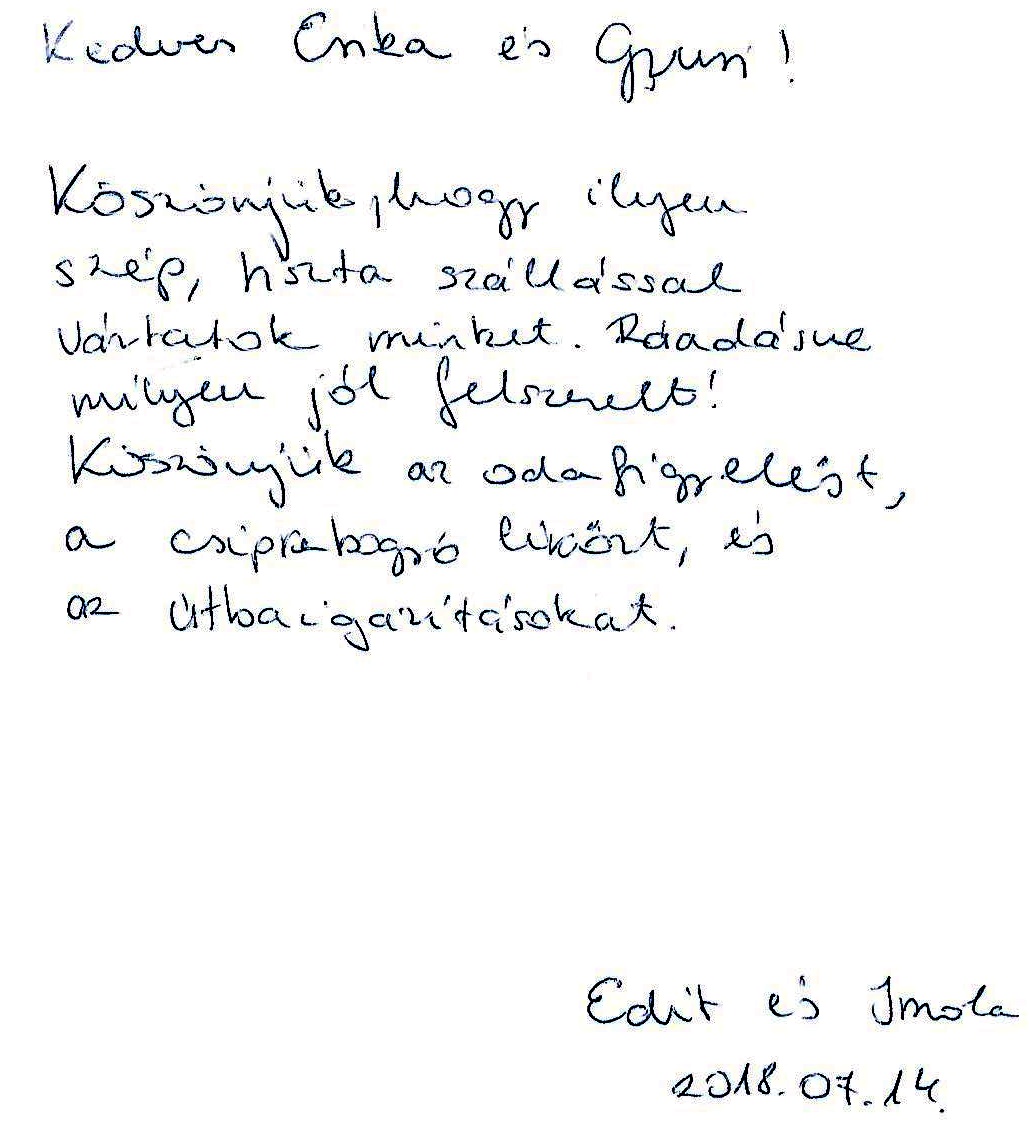 Kedves Enka és Gyuri!
Köszönjük, hogy ilyen
szép, tiszta szállással
vártatok minket. Ráadásul
milyen jól felszerelt!
Köszönjük az odafigyelést,
a csipkebogyó likőrt, és
az útbaigazításokat.
Edit és Imola
2018.07.14.